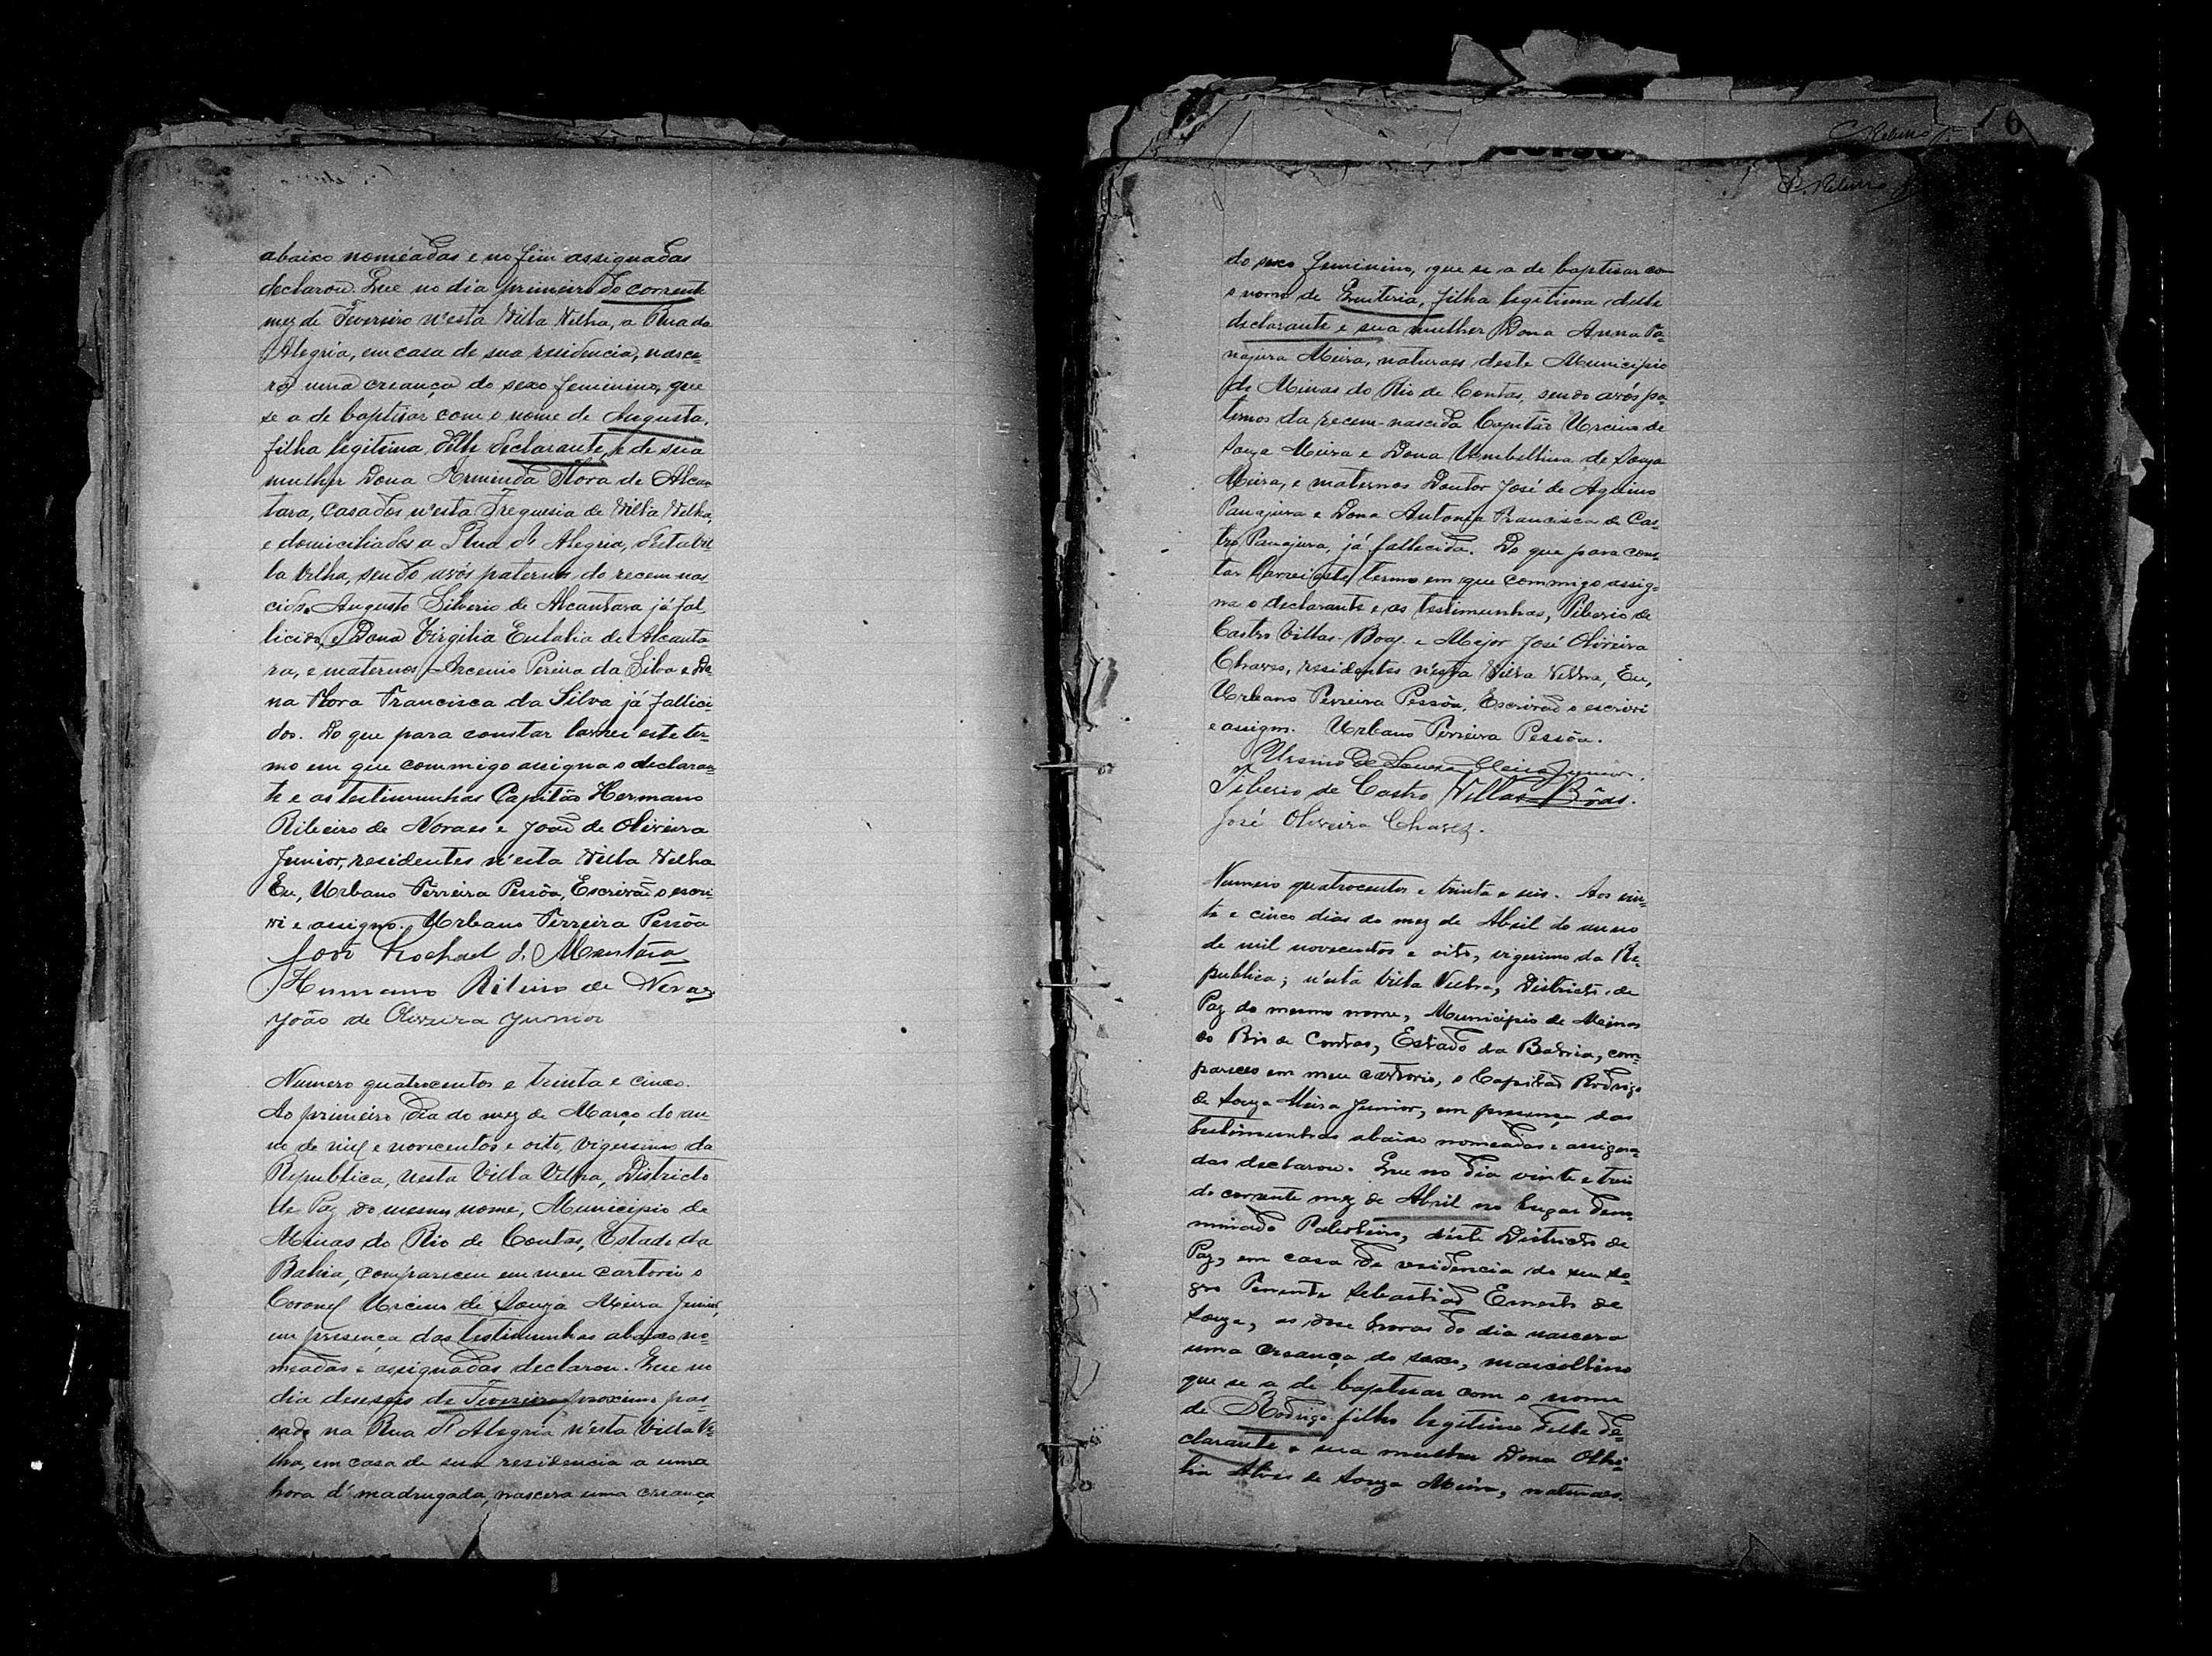 abaixo nomeadas e no fim assignadas
declarou. Que no dia primeiro do corrente
mez de Fevereiro n'esta Villa Velha, a Rua da
Alegria, em casa de sua residencia, nasce-
ra uma creança do sexo feminino, que
se a de baptisar com o nome de Augusta,
filha legitima delle declarante, e de sua
mulher Dona Arminda Flora de Alcan
tara, casados n'esta Freguesia de Villa Velha,
e domiciliados a Rua d' Alegria, desta Vil
la Velha, sendo avós paternos do recem nas
cido Augusto Silverio de Alcantara já fal
licido, e Dona Virgilia Eulalia de Alcanta
ra, e maternos Arcenio Pereira da Silva e Do
na Flora Francisca da Silva já fallici-
dos. Do que para constar lavrei este ter-
mo em que commigo assigna o declaran
te e as testimunhas Capitão Hermano
Ribeiro de Novaes e João de Oliveira
Junior, residentes n'esta Villa Velha
Eu, Urbano Ferreira Pessôa, Escrivão o escri-
vi e assigno. Urbano Ferreira Pessôa
João
Hermano Ribeiro de Novaes
João de Oliveira Junior
Numero quatrocentos e trinta e cinco.
Ao primeiro dia do mez de Março do an
no de mil e novecentos e oito, vigessimo da
Republica, nesta Villa Velha, Districto
de Paz do mesmo nome, Municipio de
Minas do Rio de Contas, Estado da
Bahia, compareceu em meu cartorio o
Coronel Urcino de Souza Meira Junior,
em presença das testimunhas abaixo no-
meadas e assignadas declarou. Que no
dia deseseis de Fevereiro proximo pas-
sado na Rua d' Alegria n'esta Villa Ve-
lha, em casa de sua residencia a uma
hora d' madrugada, nascera uma creança
6
do sexo feminino, que se a de baptisar com
o nome de Quiteria, filha legitima deste
declarante e sua mulher Dona Anna Pa-
najura Meira, naturaes deste Municipio
de Minas do Rio de Contas, sendo avós pa-
ternos da recem-nascida Capitão Urcino de
Souza Meira e Dona Umbellina de Souza
Meira, e maternos Doutor José de Aquino
Panajura e Dona Antonia Francisca de Cas-
tro Panajura, já fallecida. Do que para cons-
tar lavrei este termo em que commigo assig-
na o declarante e as testimunhas, Tiberio de
Castro Villas-Boas e Major José Oliveira
Chaves, residentes n'esta Villa Velha, Eu,
Urbano Ferreira Pessôa, Escrivão o escrivi
e assigno. Urbano Ferreira Pessôa.
Ursino de Souza Meira Junior.
Tiberio de Castro Villas-Bôas.
José Oliveira Chaves.
Numero quatrocentos e trinta e seis. Aos vin-
te e cinco dias do mez de Abril do anno
de mil novecentos e oito, vigesimo da Re-
publica; n'esta Villa Velha, Districto de
Paz do mesmo nome, Municipio de Minas
do Rio de Contas, Estado da Bahia, com-
pareceo em meu cartorio, o Capitão Rodrigo
de Souza Meira Junior, em presença das
testimunhas abaixo nomeadas e assigna-
das declarou. Que no dia vinte e treis
do corrente mez de Abril no lugar deno-
minado, deste Districto de
Paz, em casa de residencia do seu so-
gro Tenente Sebastião Ernesto de
Souza, as dose horas do dia nascera
uma creança do sexo, mascollino
que se a de baptisar com o nome
de Rodrigo filho legitimo delle de-
clarante e sua mulher Dona Othi-
lia Alves de Souza Meira, naturaes